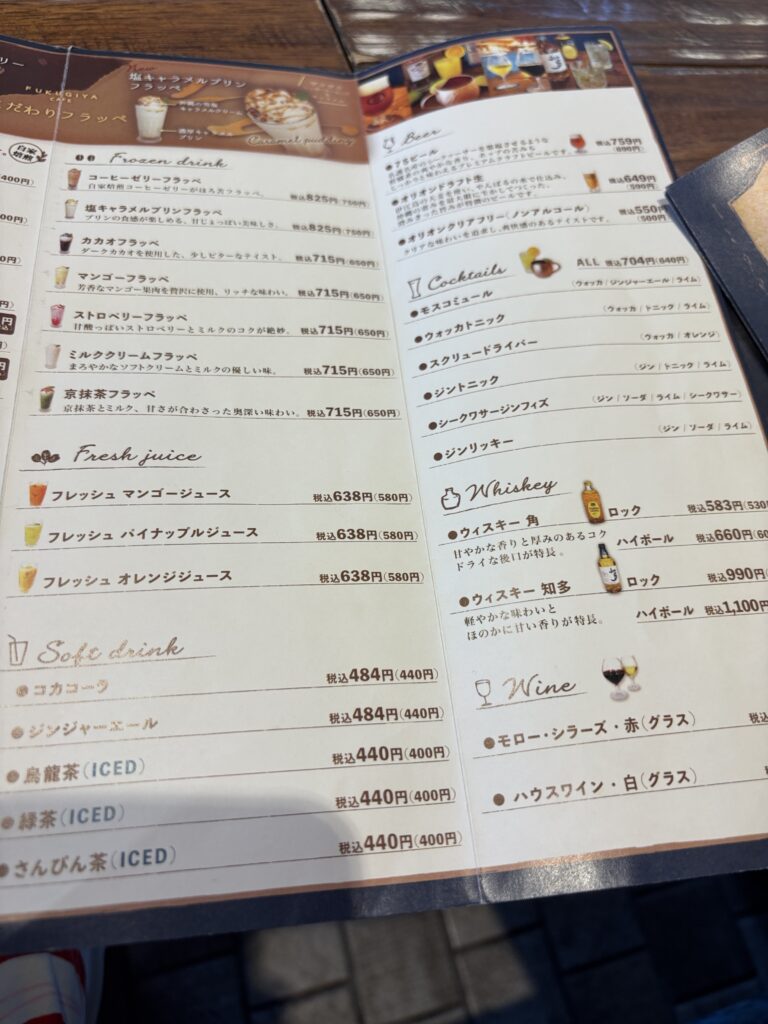 リー
FUKUGIYA
CAFE
だわりフラッペ
自家
焙煎
400円)
New
塩キャラメルプリン
フラッペ
キャラメルクリーム
プリン
Caramel pudding
Frozen drink
コーヒーゼリーフラッペ
自家焙煎コーヒーゼリーがほろ苦フラッペ。 税込825円(750円)
塩キャラメルプリンフラッペ
プリンの食感が楽しめる、甘じょっぱい美味しさ。 税込825円(750円)
カカオフラッペ
ダークカカオを使用した、少しビターなテイスト。 税込715円(650円)
マンゴーフラッペ
芳香なマンゴー果肉を贅沢に使用、リッチな味わい。 税込715円(650円)
ストロベリーフラッペ
甘酸っぱいストロベリーとミルクのコクが絶妙。 税込715円(650円)
ミルククリームフラッペ
まろやかなソフトクリームとミルクの優しい味。 税込715円(650円)
京抹茶フラッペ
京抹茶とミルク、甘さが合わさった奥深い味わい。 税込715円(650円)
Fresh juice
フレッシュ マンゴージュース 税込638円(580円)
フレッシュ パイナップルジュース 税込638円(580円)
フレッシュ オレンジジュース 税込638円(580円)
Soft drink
●コカコーラ 税込484円(440円)
●ジンジャーエール 税込484円(440円)
●烏龍茶(ICED) 税込440円(400円)
●緑茶(ICED) 税込440円(400円)
●さんぴん茶(ICED) 税込440円(400円)
Beer
●75ビール 税込759円
(690円)
しっかりと味わえるプレミアムクラフトビールです。
●オリオンドラフト生 税込649円
(590円)
伊江島の大麦を使い、やんばるの水で仕込み、
●オリオンクリアフリー(ノンアルコール) 税込550円
(500円)
クリアな味わいを追求し、爽快感のあるテイストです。
Cocktails ALL 税込704円(640円)
●モスコミュール (ウォッカ/ジンジャーエール/ライム)
●ウォッカトニック (ウォッカ/トニック/ライム)
●スクリュードライバー (ウォッカ/オレンジ)
●ジントニック (ジン/トニック/ライム)
●シークワサージンフィズ (ジン/ソーダ/ライム/シークワサー)
●ジンリッキー (ジン/ソーダ/ライム)
Whiskey
●ウィスキー 角 ロック 税込583円(530
甘やかな香りと厚みのあるコク
ドライな後口が特長。
ハイボール 税込660円(60
●ウィスキー 知多 ロック 税込990円(
軽やかな味わいと
ほのかに甘い香りが特長。
ハイボール 税込1,100円
Wine
●モロー・シラーズ・赤(グラス) 税込
●ハウスワイン・白(グラス)